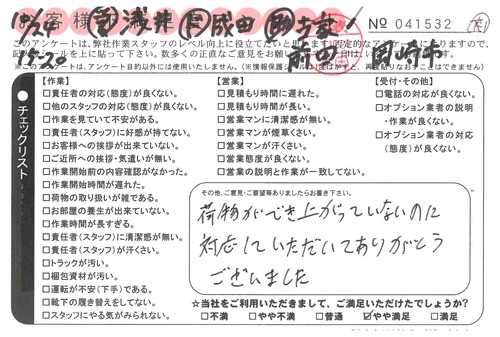 10/24
15-20
お客様
営 浅井 成田 古家
前田 岡崎市
№ 041532
このアンケートは、弊社作業スタッフのレベル向上に役立てたいと思います。否定的なアンケートになりますので、
※このアンケートは、アンケート目的以外には使用いたしません。
チェックリスト
【作業】
□責任者の対応(態度)が良くない。
□他のスタッフの対応(態度)が良くない。
□作業を見ていて不安がある。
□責任者(スタッフ)に好感が持てない。
□お客様への挨拶が出来ていない。
□ご近所への挨拶・気遣いが無い。
□作業開始前の内容確認がなかった。
□作業開始時間が遅れた。
□荷物の取り扱いが雑である。
□お部屋の養生が出来ていない。
□作業時間が長すぎる。
□責任者(スタッフ)に清潔感が無い。
□責任者(スタッフ)が汗くさい。
□トラックが汚い。
□梱包資材が汚い。
□運転が不安(下手)である。
□靴下の履き替えをしてない。
□スタッフにやる気がみられない。
【営業】
□見積もり時間に遅れた。
□見積もり時間が長い。
□営業マンに清潔感が無い。
□営業マンが煙草くさい。
□営業マンが汗くさい。
□営業態度が良くない。
□営業の説明と作業が一致してない。
【受付・その他】
□電話の対応が良くない。
□オプション業者の説明
・作業が良くない。
□オプション業者の対応
(態度)が良くない。
その他、ご意見・ご要望等ありましたらお書き下さい。
荷物ができ上がっていないのに
対応していただいてありがとう
ございました
☆当社をご利用いただきまして、ご満足いただけたでしょうか?
□不満 □やや不満 □普通 ☑やや満足 □満足